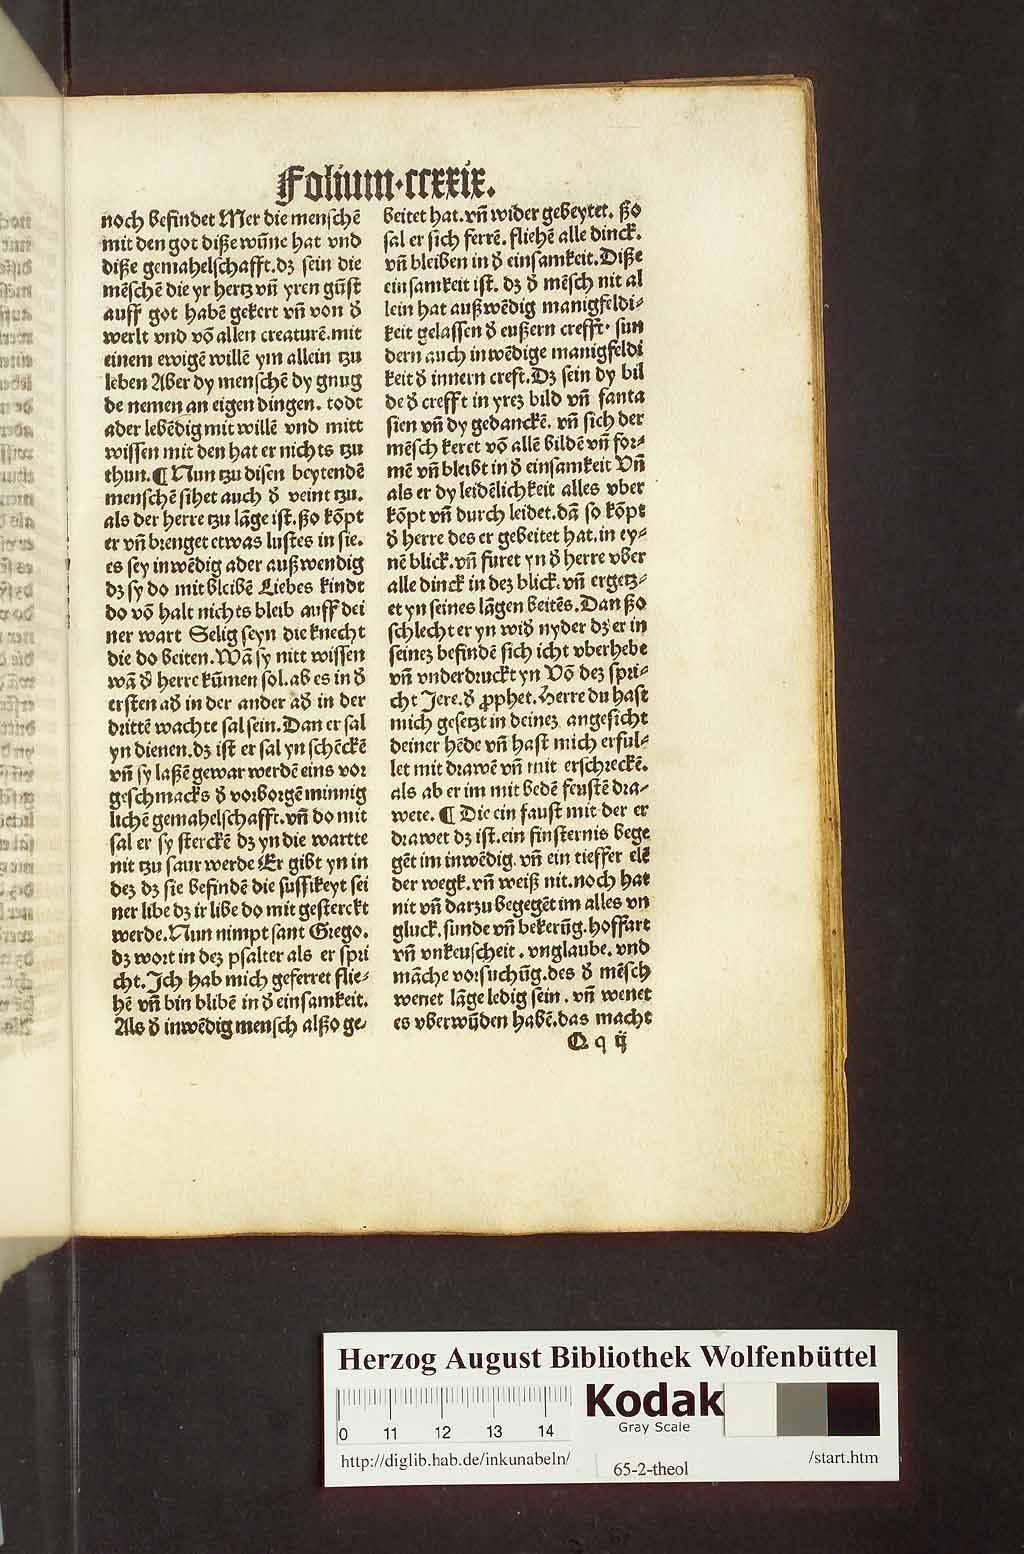 Folium·ccxxix.
noch befindet Mer die menschē
mit den got diße wūne hat vnd
diße gemahelschafft.dz sein die
mēschē die yr hertz vn̄ yren gūst
auff got habē gekert vn̄ von d̄
werlt vnd vō allen creaturē.mit
einem ewigē willē ym allein tzu
leben Aber dy menschē dy gnug
de nemen an eigen dingen. todt
ader lebēdig mit willē vnd mitt
wissen mit den hat er nichts tzu
thun.¶ Nun tzu disen beytendē
menschē sihet auch d̄ veint tzu.
als der herre tzu lāge ist.ßo kōpt
er vn̄ brenget etwas lustes in sie.
es sey inwēdig ader außwendig
dz sy do mit bleibē Liebes kindt
do vō halt nichts bleib auff dei
ner wart Selig seyn die knecht
die do beiten.Wā sy nitt wissen
wā d̄ herre kūmen sol.ab es in d̄
ersten ad̄ in der ander ad̄ in der
drittē wachte sal sein.Dan er sal
yn dienen.dz ist er sal yn schēckē
vn̄ sy laßē gewar werdē eins vor
geschmacks d̄ vorborgē minnig
lichē gemahelschafft.vn̄ do mit
sal er sy sterckē dz yn die wartte
nit tzu saur werde Er gibt yn in
dez dz sie befindē die sussikeyt sei
ner libe dz ir libe do mit gesterckt
werde.Nun nimpt sant Grego.
dz wort in dez psalter als er spri
cht.Ich hab mich geferret flie-
hē vn̄ bin blibē in d̄ einsamkeit.
Als d̄ inwēdig mensch alßo ge-
beitet hat.vn̄ wider gebeytet. ßo
sal er sich ferrē. fliehē alle dinck.
vn̄ bleiben in d̄ einsamkeit.Diße
einsamkeit ist. dz d̄ mēsch nit al
lein hat außwēdig manigfeldi-
keit gelassen d̄ eußern crefft· sun
dern auch inwēdige manigfeldi
keit d̄ innern creft.Dz sein dy bil
de d̄ crefft in yrez bild vn̄ fanta
sien vn̄ dy gedanckē. vn̄ sich der
mēsch keret vō allē bildē vn̄ for-
mē vn̄ bleibt in d̄ einsamkeit Vn̄
als er dy leidēlichkeit alles vber
kōpt vn̄ durch leidet.dā so kōpt
d̄ herre des er gebeitet hat.in ey-
nē blick.vn̄ furet yn d̄ herre vber
alle dinck in dez blick.vn̄ ergetz-
et yn seines lāgen beitēs.Dan ßo
schlecht er yn wid̄ nyder dz er in
seinez befindē sich icht vberhebe
vn̄ vnderdruckt yn Vō dez spri-
cht Jere.d̄ ꝓphet.Herre du hast
mich gesetzt in deinez angesicht
deiner hēde vn̄ hast mich erful-
let mit drawē vn̄ mit erschreckē.
als ab er im mit bedē feustē dra-
wete. ¶ Die ein faust mit der er
drawet dz ist.ein finsternis bege
gēt im inwēdig. vn̄ ein tieffer elē
der wegk.vn̄ weiß nit.noch hat
nit vn̄ darzu begegēt im alles vn
gluck.sunde vn̄ bekerūg.hoffart
vn̄ vnkeuscheit. vnglaube. vnd
māche vorsuchūg.des d̄ mēsch
wenet lāge ledig sein. vn̄ wenet
es vberwūden habē.das macht
Q q ij
Herzog August Bibliothek Wolfenbüttel
0 11 12 13 14
Kodak
Gray Scale
http://diglib.hab.de/inkunabeln/
65-2-theol
/start.htm